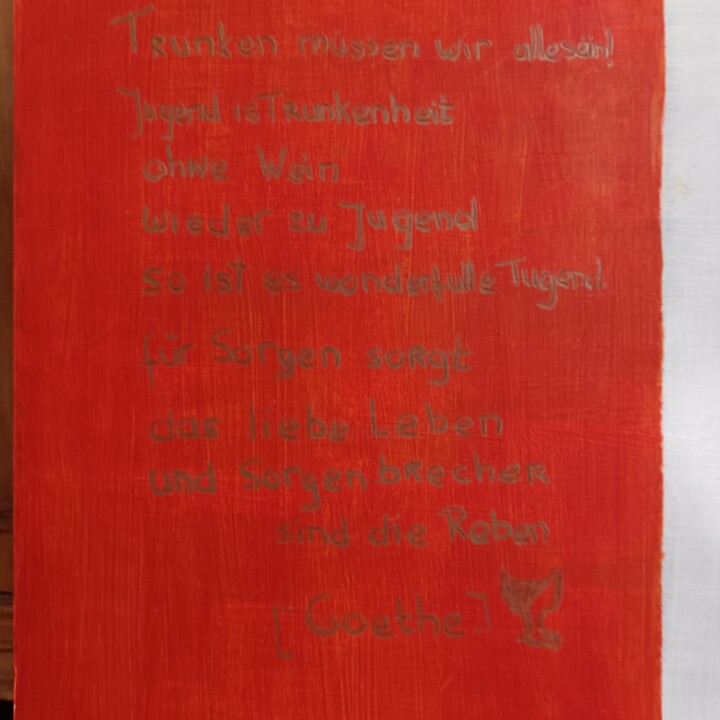 Trunken müssen wir alle sein!
Jugend ist Trunkenheit
ohne Wein
wieder zu Jugend
so ist es wonderfulle Tugend.
für Sorgen sorgt
das liebe Leben
und Sorgenbrecher
sind die Reben
[Goethe]